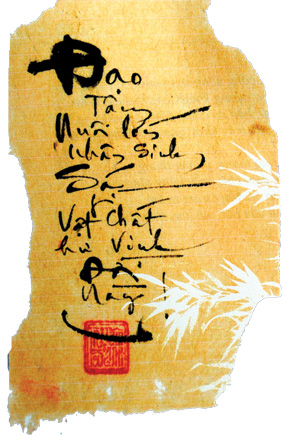 Đạo
Tâm
Nuôi lớn
nhân sinh
Sá
gì
Vật chất
hư vinh
Đời
này!